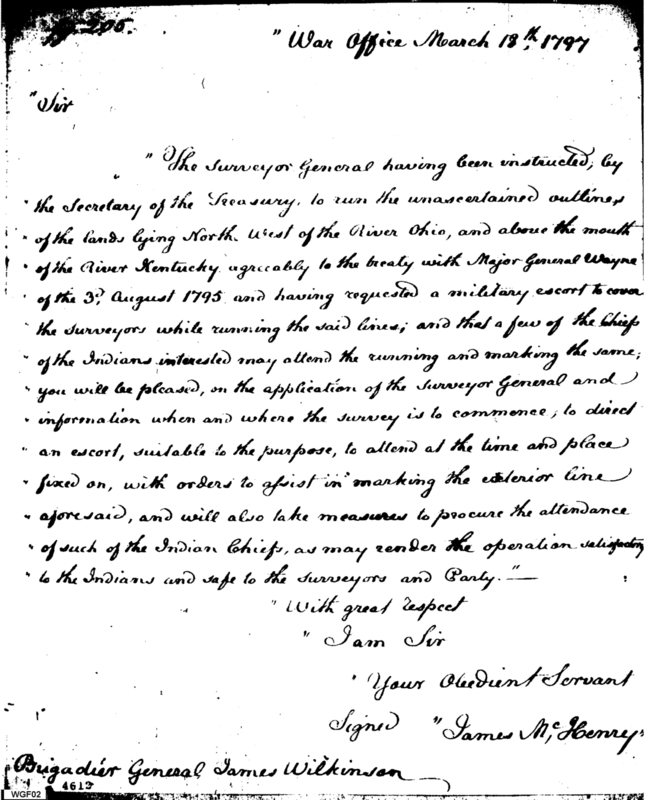 pg. 205.
" War Office March 18th, 1797
" Sir
" The Surveyor General having been instructed, by
" the Secretary of the Treasury, to run the unascertained outlines
" of the lands lying North West of the River Ohio, and above the mouth
" of the River Kentucky agreeably to the treaty with Major General Wayne
" of the 3d. August 1795 and having requested a military escort to cover
" the surveyors while running the said lines; and that a few of the Chiefs
" of the Indians interested may attend the running and marking the same;
" you will be pleased, on the application of the Surveyor General and
" information when and where the survey is to commence, to direct
" an escort, suitable to the purpose, to attend at the time and place
" fixed on, with orders to assist in marking the exterior line
" aforesaid, and will also take measures to procure the attendance
" of such of the Indian Chiefs, as may render the operation satisfactory
" to the Indians and safe to the surveyors and Party."—
" With great respect
" I am Sir
" Your Obedient Servant
Signed " James McHenry"
Brigadier General James Wilkinson
4613
WGF02